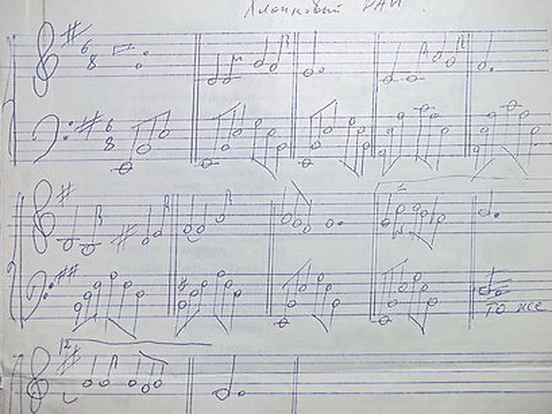 Хлопковый РАЙ.
6 8
6 8
то же
12